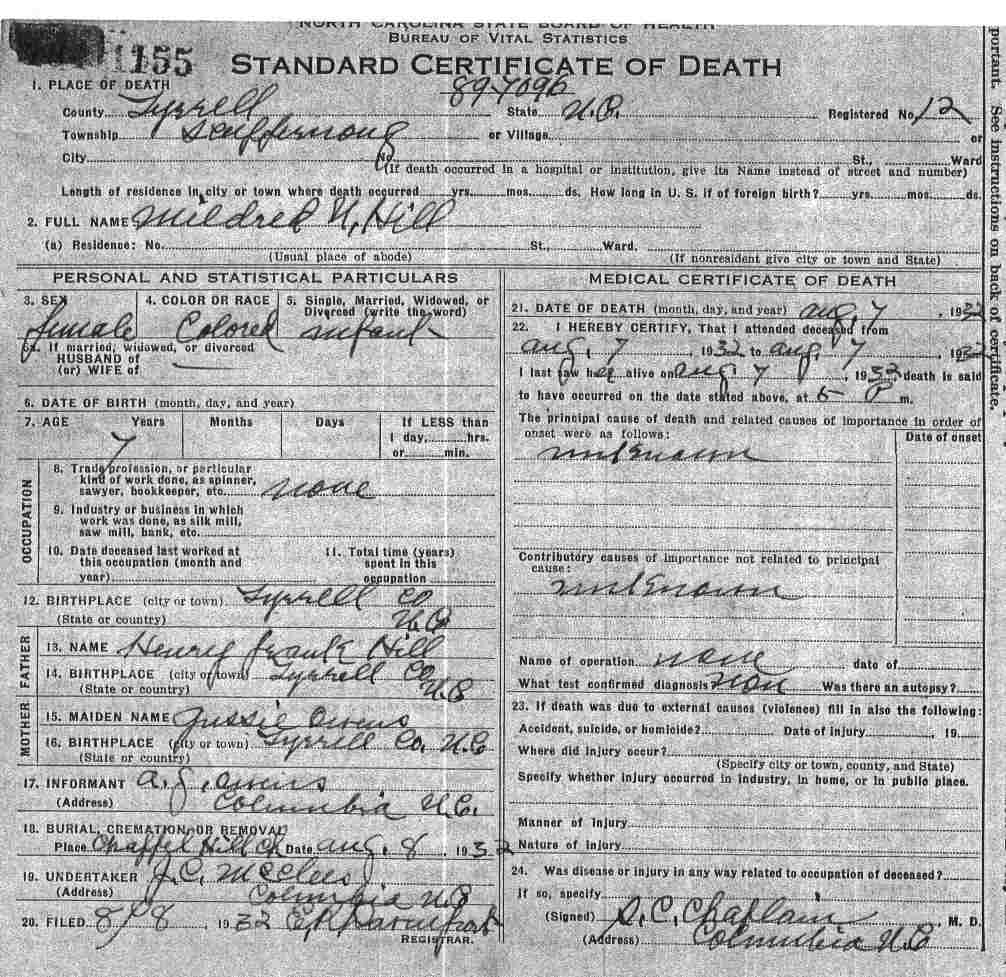 NORTH CAROLINA STATE BOARD OF HEALTH
BUREAU OF VITAL STATISTICS
1155
STANDARD CERTIFICATE OF DEATH
89-7096
1. PLACE OF DEATH
County Tyrrell State N.C. Registered No. 12
Township Scuppernong or Village or
City No. St., Ward
(If death occurred in a hospital or institution, give its Name instead of street and number)
Length of residence in city or town where death occurred yrs. mos. ds. How long in U. S. if of foreign birth? yrs. mos. ds.
2. FULL NAME Mildred N. Hill
(a) Residence: No. St., Ward.
(Usual place of abode) (If nonresident give city or town and State)
PERSONAL AND STATISTICAL PARTICULARS
3. SEX 4. COLOR OR RACE 5. Single, Married, Widowed, or Divorced (write the word)
female Colored infant
5a. If married, widowed, or divorced
HUSBAND of
(or) WIFE of
6. DATE OF BIRTH (month, day, and year)
7. AGE Years Months Days If LESS than
1 day, hrs.
or min.
7
8. Trade, profession, or particular
kind of work done, as spinner,
sawyer, bookkeeper, etc. none
9. Industry or business in which
work was done, as silk mill,
saw mill, bank, etc.
10. Date deceased last worked at
this occupation (month and
year)
11. Total time (years)
spent in this
occupation
OCCUPATION
12. BIRTHPLACE (city or town) Tyrrell Co
(State or country) N.C.
FATHER
13. NAME Henry Frank Hill
14. BIRTHPLACE (city or town) Tyrrell Co
(State or country) N.C.
MOTHER
15. MAIDEN NAME Gussie Owens
16. BIRTHPLACE (city or town) Tyrrell Co. N.C
(State or country)
17. INFORMANT A. J. Owens
(Address) Columbia N.C.
18. BURIAL, CREMATION OR REMOVAL
Place Chappel Hill Ch Date Aug. 8, 1932
19. UNDERTAKER J. C. McClees
(Address) Columbia N.C
20. FILED 8/8 1932
REGISTRAR.
MEDICAL CERTIFICATE OF DEATH
21. DATE OF DEATH (month, day, and year) Aug, 7, 1932
22. I HEREBY CERTIFY, That I attended deceased from
Aug, 7, 1932 to Aug. 7, 1932
I last saw her alive on Aug 7, 1932 death is said
to have occurred on the date stated above, at 5 P m.
The principal cause of death and related causes of importance in order of
onset were as follows: Date of onset
unknown
Contributory causes of importance not related to principal
cause:
unknown
Name of operation none date of
What test confirmed diagnosis? non Was there an autopsy?
23. If death was due to external causes (violence) fill in also the following:
Accident, suicide, or homicide? Date of injury, 19
Where did injury occur?
(Specify city or town, county, and State)
Specify whether injury occurred in industry, in home, or in public place.
Manner of injury
Nature of injury
24. Was disease or injury in any way related to occupation of deceased?
If so, specify
(Signed) S. C. Chaplain, M. D.
(Address) Columbia N.C
portant. See instructions on back of certificate.